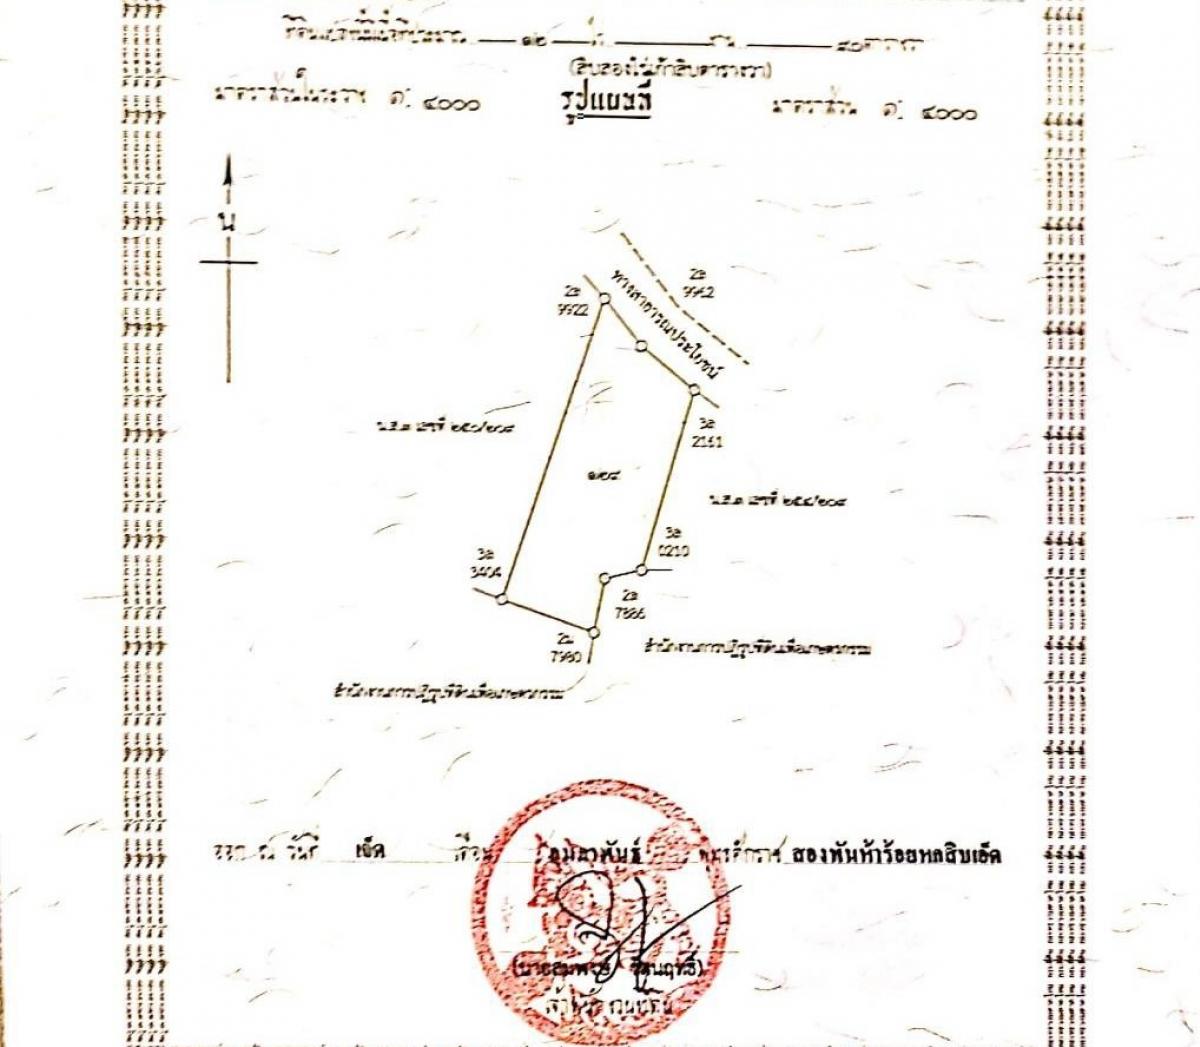 ที่ดินแปลงนี้มีเนื้อที่ประมาณ ๑๒ ไร่ งาน ๙๐ ตารางวา
(สิบสองไร่เก้าสิบตารางวา)
มาตราส่วนในระวาง ๑: ๔๐๐๐ รูปแผนที่ มาตราส่วน ๑: ๔๐๐๐
น
9962
9922
ทางสาธารณประโยชน์
2161
น.ส.๓ เลขที่ ๒๕๐/๒๐๘
๑๒๘
น.ส.๓ เลขที่ ๒๕๔/๒๐๘
0210
3404
7886
7980
สำนักงานการปฏิรูปที่ดินเพื่อเกษตรกรรม
สำนักงานการปฏิรูปที่ดินเพื่อเกษตรกรรม
ออก ณ วันที่ เจ็ด เดือน กุมภาพันธ์ พุทธศักราช สองพันห้าร้อยหกสิบเอ็ด
เจ้าพนักงานที่ดิน